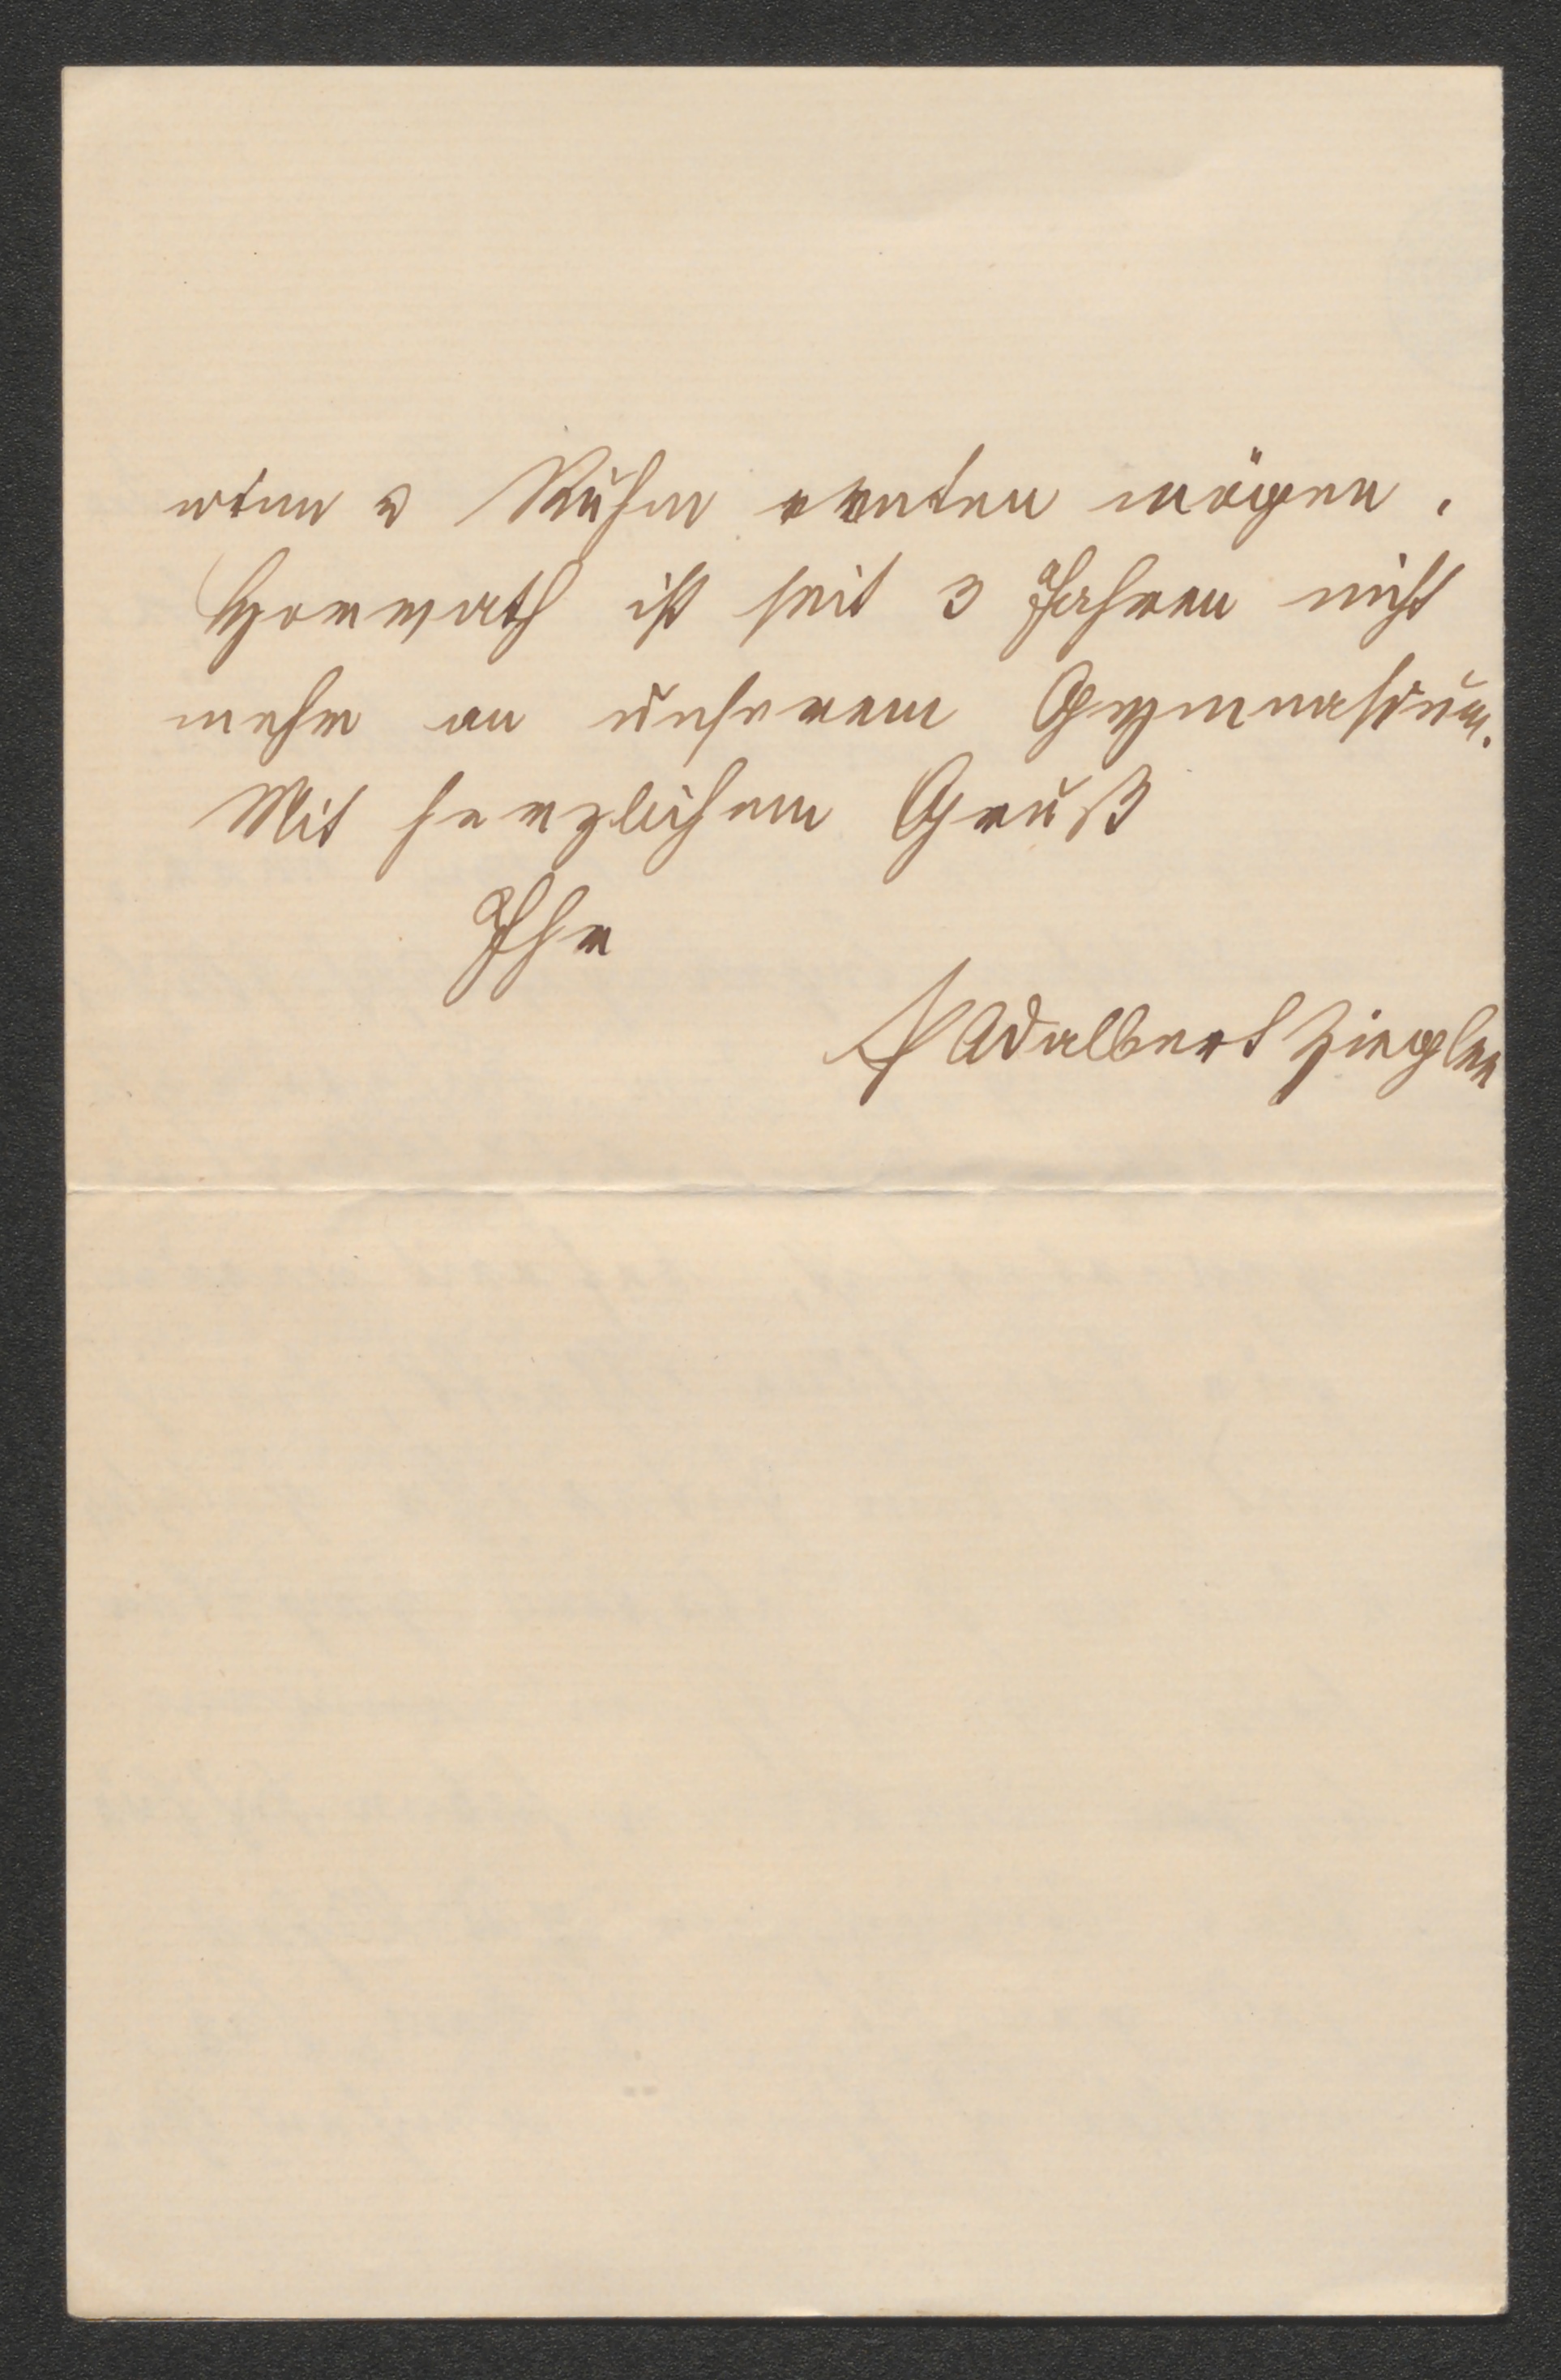 u Ruhm ernten mögen.
Horvath ist seit 3 Jahren nicht
mehr an unserem Gymnasium.
Mit herzlichem Gruß
Ihr
P Adalbert Ziegler